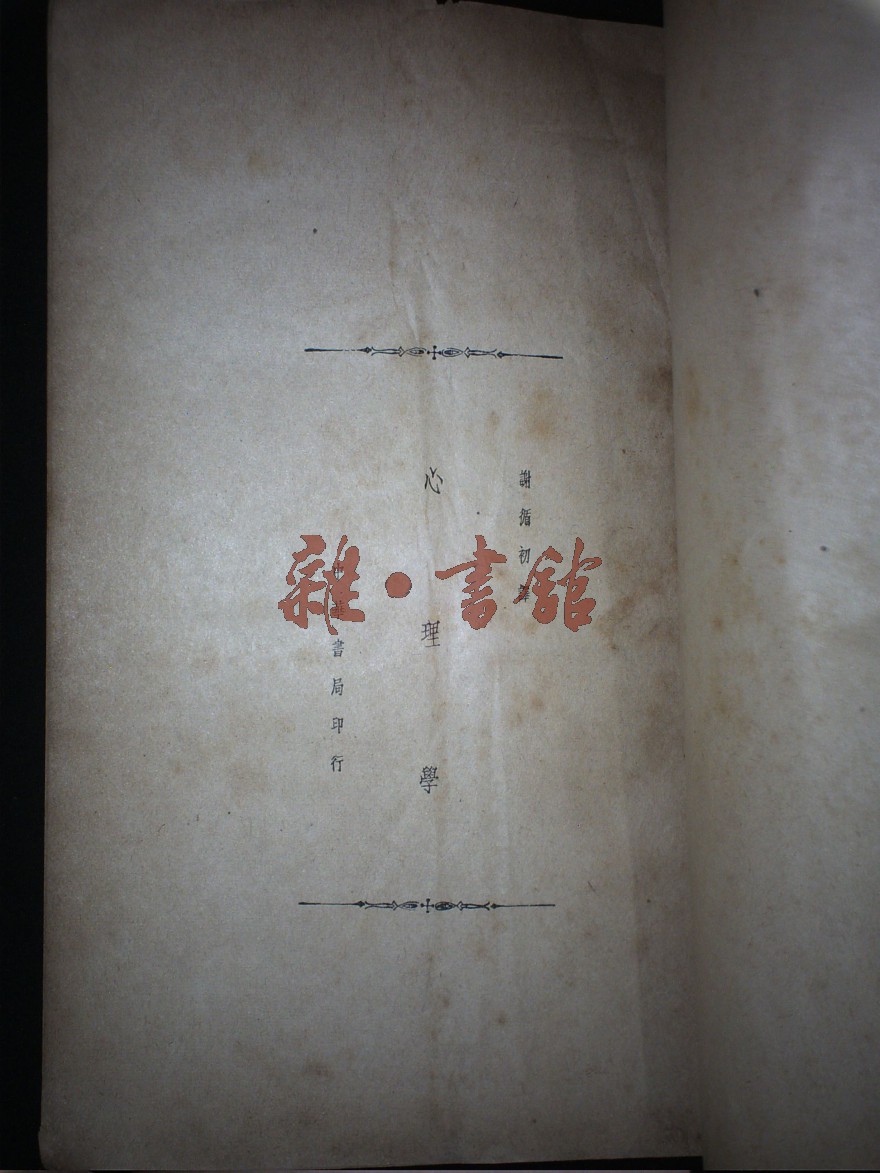 謝循初譯
心理學
中華書局印行
雜·書館